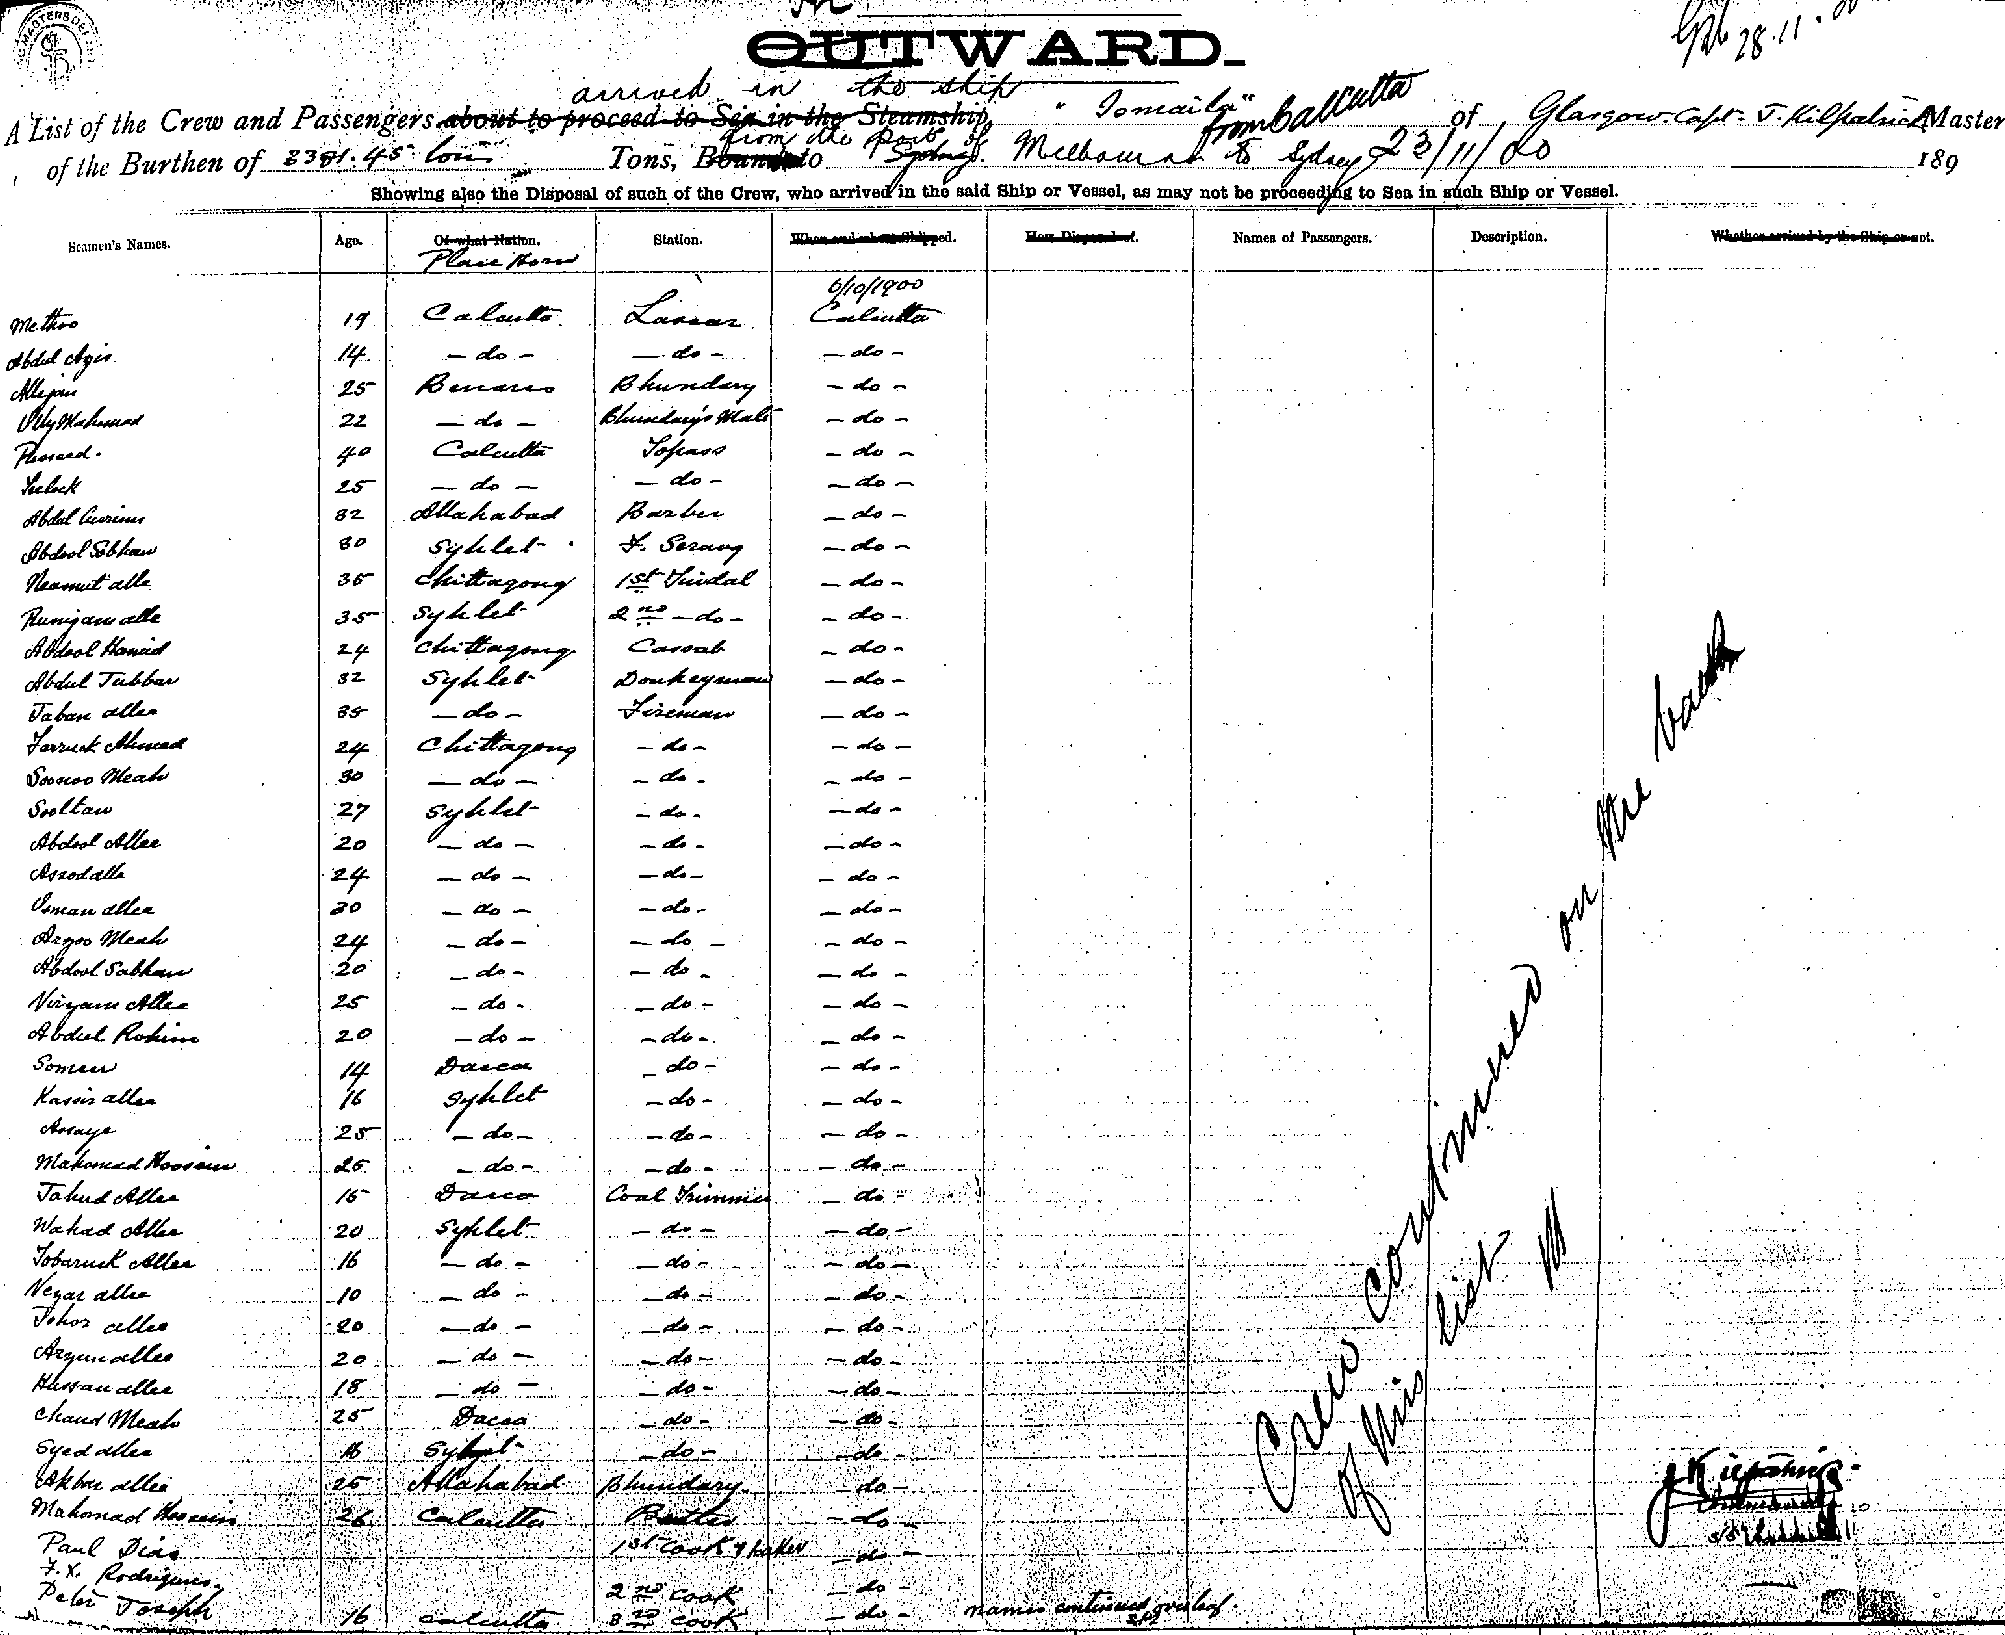 OUTWARD.
28.11.00
arrived in the ship
A List of the Crew and Passengers about to proceed to Sea in the Steamship, "Ismaila" from Calcutta of Glasgow Capt. J. Kilpatrick Master
from the port of
of the Burthen of 3381.45 tons Tons, Bound to Sydney. Melbourne to Sydney 23/11/00 189
Showing also the Disposal of such of the Crew, who arrived in the said Ship or Vessel, as may not be proceeding to Sea in such Ship or Vessel.
Seamen's Names. Age. Of what Nation. Station. When and where Shipped. How Disposed of. Names of Passengers. Description. Whether arrived by the Ship or not.
Place Born
6/10/1900
Methoo 19 Calcutta Lascar Calcutta
Abdul Azis 14 - do - - do - - do -
Allijan 25 Benares Bhundary - do -
Ully Mahomad 22 - do - Bhundary's Mate - do -
40 Calcutta Topass - do -
25 - do - - do - - do -
Abdul 32 Allahabad Barber - do -
Abdool Sobhan 30 Syhlet F. Serang - do -
Neamut alle 35 Chittagong 1st Tindal - do -
Runijam alle 35 Syhlet 2nd - do - - do -
Abdool Hamid 24 Chittagong Cassab - do -
Abdul Jubbar 32 Syhlet Donkeyman - do -
Jaban allee 35 - do - Fireman - do -
Farruck Ahmed 24 Chittagong - do - - do -
Soonoo Meah 30 - do - - do - - do -
Sooltan 27 Syhlet - do - - do -
Abdool Allee 20 - do - - do - - do -
Assodalle 24 - do - - do - - do -
Osman allee 30 - do - - do - - do -
Arzoo Meah 24 - do - - do - - do -
Abdool Sabhan 20 - do - - do - - do -
Niryam Allee 25 - do - - do - - do -
Abdul Rohim 20 - do - - do - - do -
Soman 14 Dacca - do - - do -
Kasir allee 16 Syhlet - do - - do -
Asraye 25 - do - - do - - do -
Mahomad Hossein 25 - do - - do - - do -
Jahud Allee 15 Dacca Coal Trimmer - do -
Wahad Allee 20 Syhlet - do - - do -
Tobaruck Allee 16 - do - - do - - do -
Nezar allee 10 - do - - do - - do -
Johor allee 20 - do - - do - - do -
Arzun allee 20 - do - - do - - do -
Hassan allee 18 - do - - do - - do -
Chand Meah 25 Dacca - do - - do -
Syed allee 16 Syhlet - do - - do -
Akbar allie 25 Allahabad Bhundary - do -
Mahomad Hossein 26 Calcutta Butler - do -
Paul Dias 1st Cook & baker - do -
F. X. Rodrigues 2nd Cook - do -
Peter Joseph 16 Calcutta 3rd Cook - do - names continued overleaf.
Crew continued on the back
of this list
J Kilpatrick